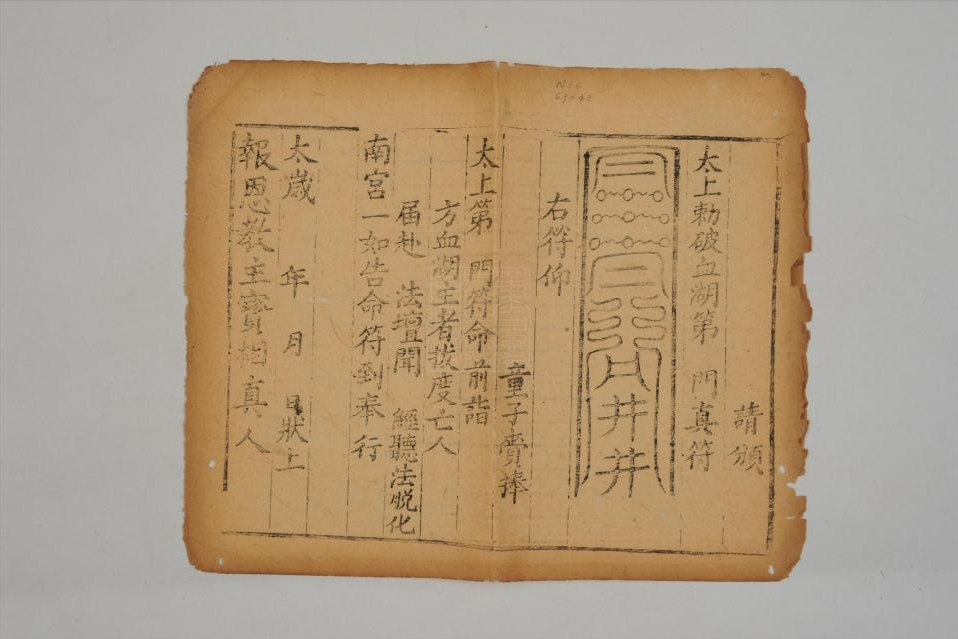 請頒
太上勅破血湖第 門真符
右符仰
童子賫捧
太上第 門符命前詣
方血湖主者拔度亡人
届赴 法壇聞 經聽法脱化
南宮一如告命符到奉行
太歲 年 月 日狀上
報恩教主寳相真人